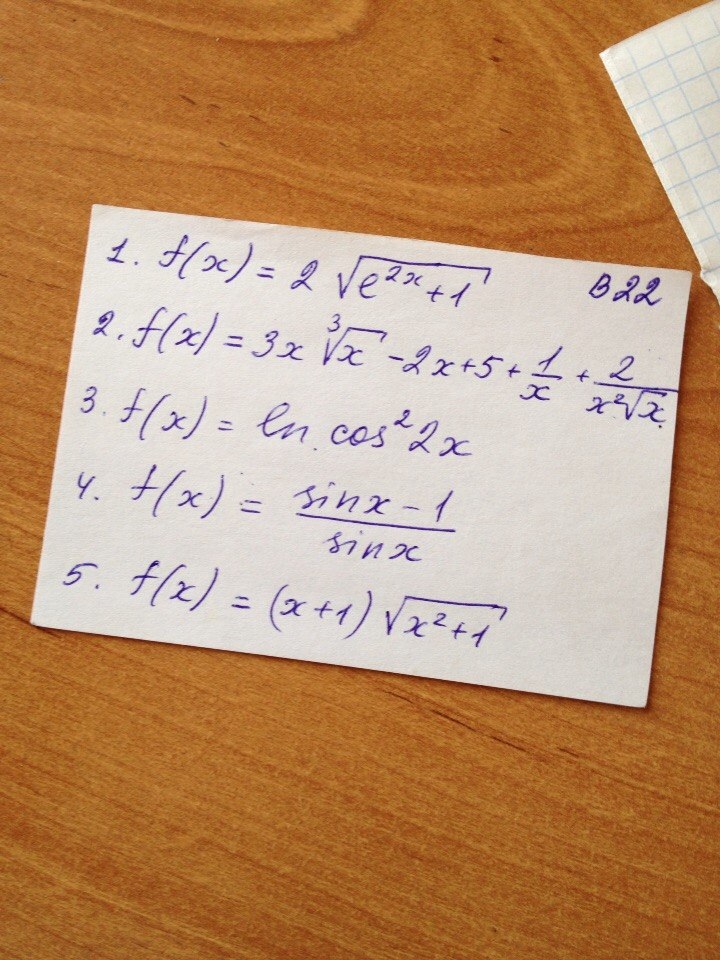 B22
1. f(x) = 2 √(e^(2x)+1)
2. f(x) = 3x ∛x - 2x + 5 + 1/x + 2/(x²√x)
3. f(x) = ln cos² 2x
4. f(x) = (sinx - 1)/(sinx)
5. f(x) = (x+1) √(x²+1)